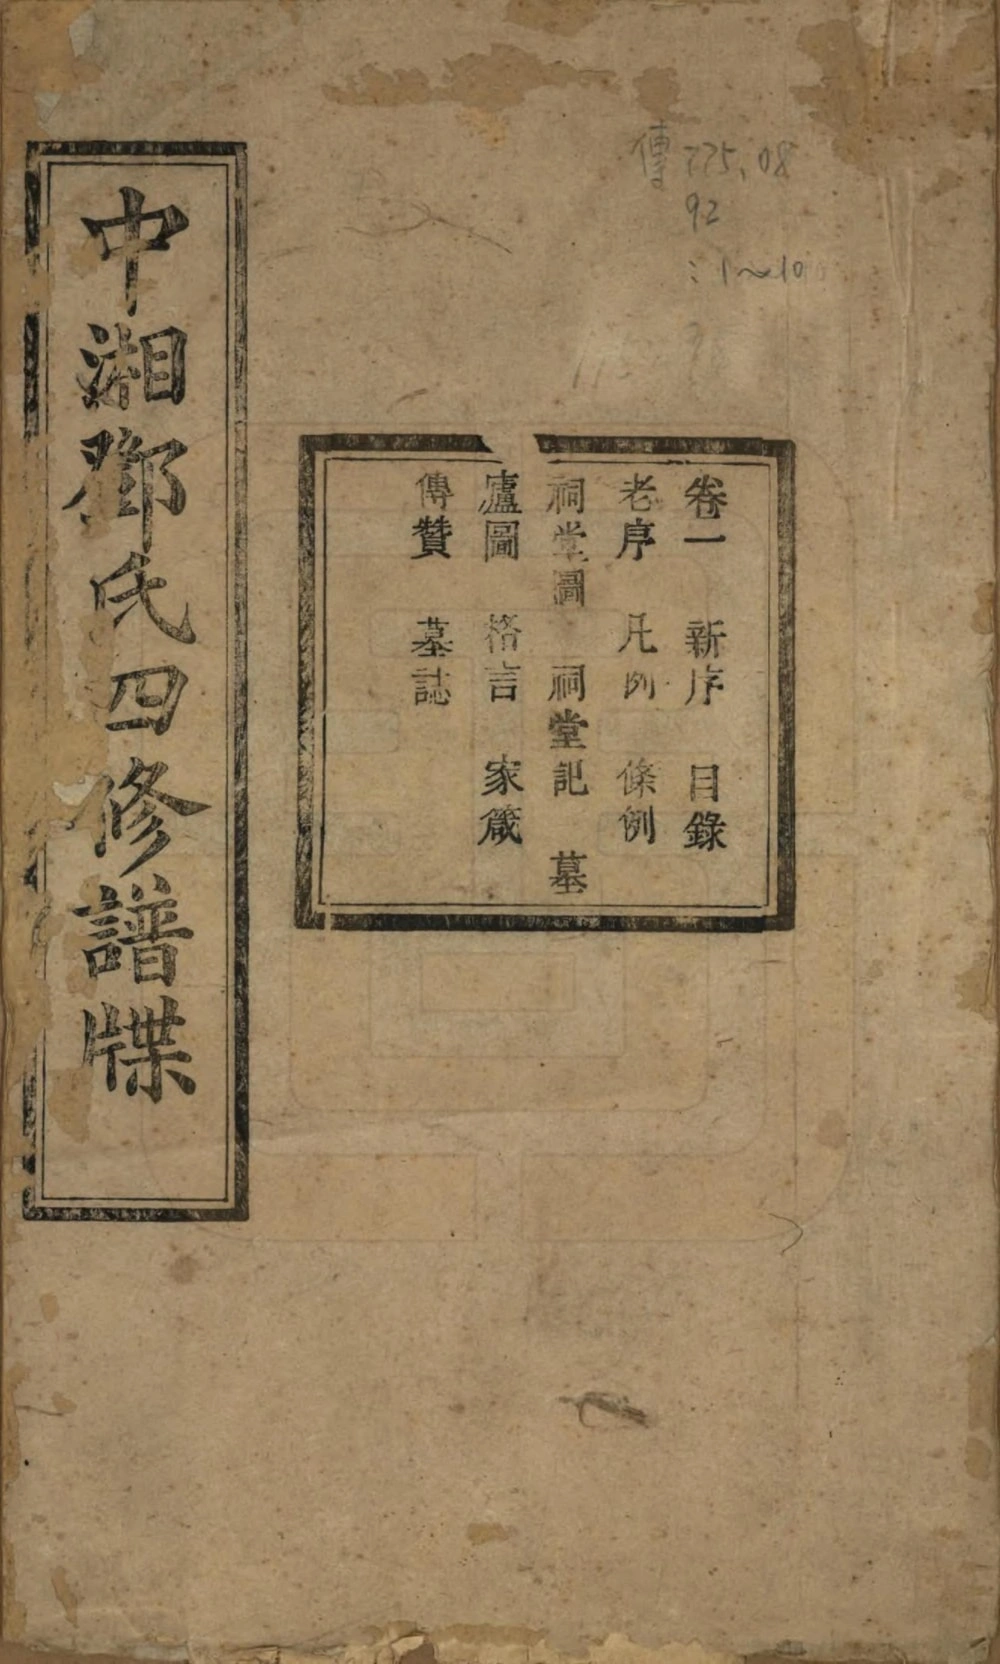 中湘鄧氏四修譜牒
傳 775.08
92
:1～10
卷一 新序 目錄
老序 凡例 條例
祠堂圖 祠堂記 墓
廬圖 格言 家箴
傳贊 墓誌